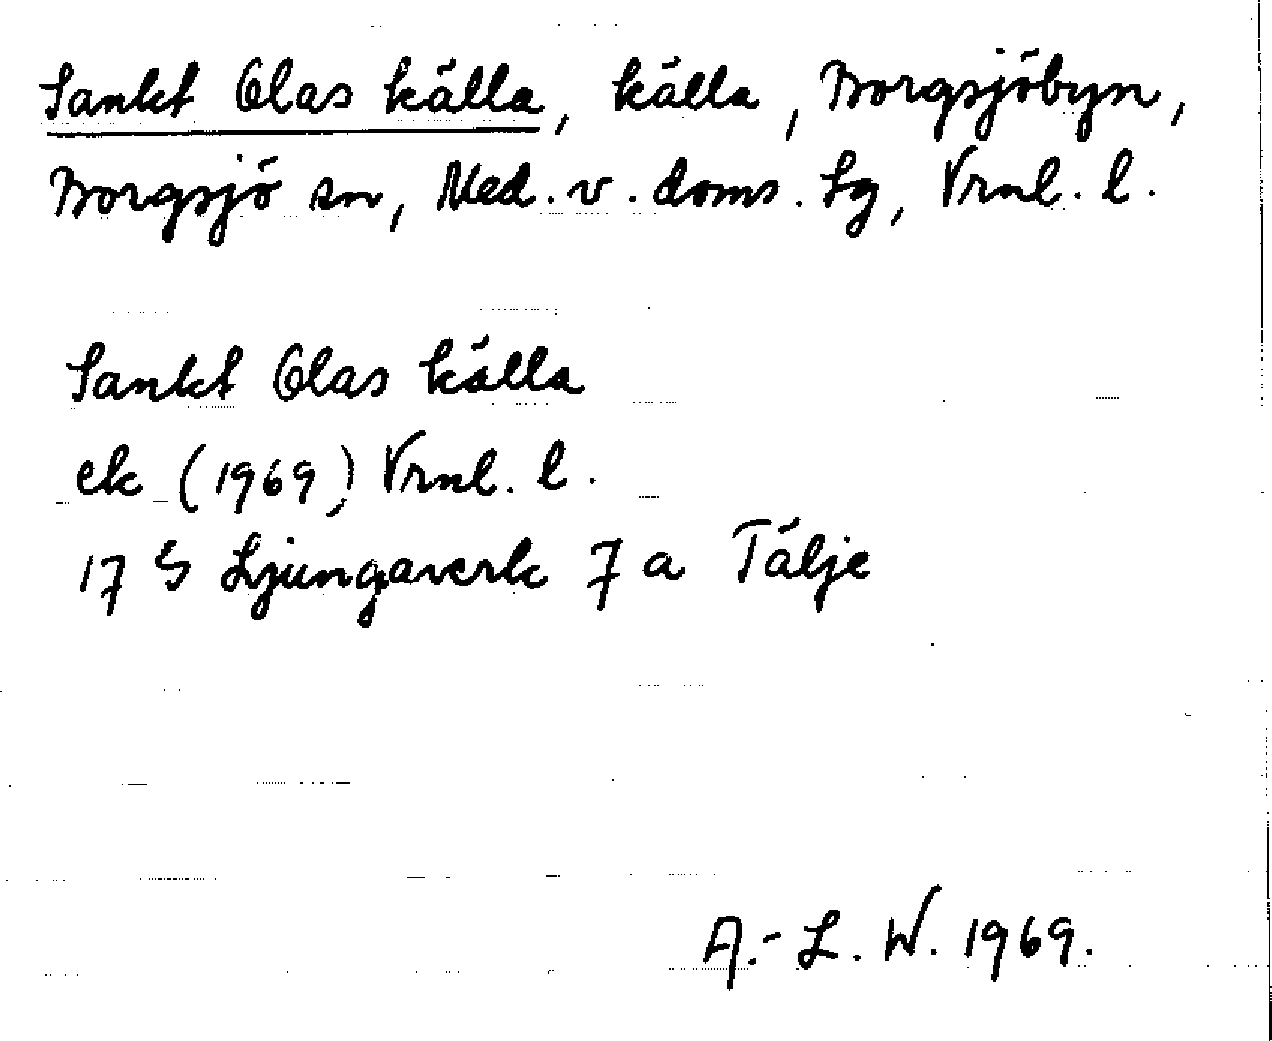 Sankt Olas källa, källa, Borgsjöbyn,
Borgsjö sn, Med. v. doms. tg, Vrnl. l.
Sankt Olas källa
ek (1969) Vrnl. l.
17 G Ljungaverk 7 a Tälje
A.-L. W. 1969.